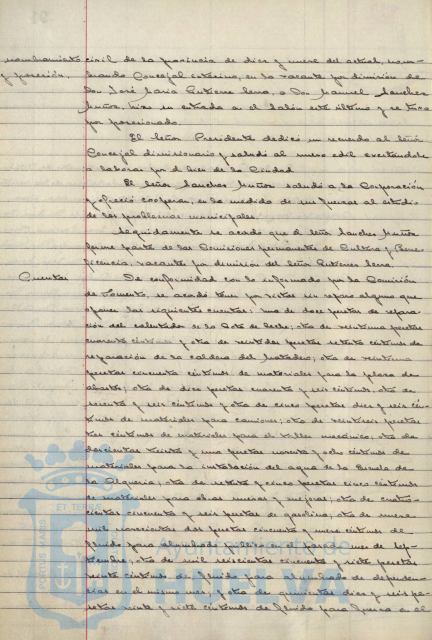 nombramiento civil de la provincia de diez y nueve del actual, nom-
y posesión. brando Concejal interino, en la vacante por dimisión de
Don José María Gutiérrez Lera, a Don Manuel Sánchez
Muñoz, hizo su entrada en el Salón este último y se tuvo
por posesionado.
El Señor Presidente dedicó un recuerdo al Señor
Concejal dimisionario y saludó al nuevo edil exortándole
a laborar por el bien de la Ciudad
El Señor Sánchez Muñoz saludó a la Corporación
y ofreció cooperar, en la medida de sus fuerzas al estudio
de los problemas municipales.
Seguidamente se acordó que el Señor Sánchez Muñoz
forme parte de las Comisiones permanentes de Cultura y Bene-
ficencia, vacantes por dimisión del Señor Gutiérrez Lera.
Cuentas De conformidad con lo informado por la Comisión
de Fomento, se acordó tener por vistas sin reparo alguno que
oponer las siguientes cuentas: una de doce pesetas de repara-
ción del calentador de la Gota de leche; otra de veintiuna pesetas
cuarenta céntimos y otra de veintidós pesetas setenta céntimos de
reparación de la caldera del Matadero; otra de veintiuna
pesetas cincuenta céntimos de materiales para la plaza de
abastos; otra de diez pesetas cuarenta y seis céntimos, otra de
sesenta y seis céntimos y otra de cinco pesetas diez y seis cén-
timos de materiales para camiones; otra de veintiseis pesetas
tres céntimos de materiales para el taller mecánico; otra de
doscientas treinta y una pesetas noventa y ocho céntimos de
materiales para la instalación del agua de la Escuela de
la Alquería; otra de setenta y cinco pesetas cinco céntimos
de materiales para obras nuevas y mejoras; otra de cuatro-
cientas cincuenta y seis pesetas de gasolina; otra de nueve
mil novecientas dos pesetas cincuenta y nueve céntimos de
fluido para alumbrado público en el pasado mes de Sep-
tiembre; otra de mil seiscientas cincuenta y siete pesetas
veinte céntimos de fluido para alumbrado de dependen-
cias en el mismo mes, y otra de quinientas diez y seis pe-
setas veinte y siete céntimos de fluido para fuerza en el
PORTUS MAGNA
ET TERRA
Ayuntamiento de